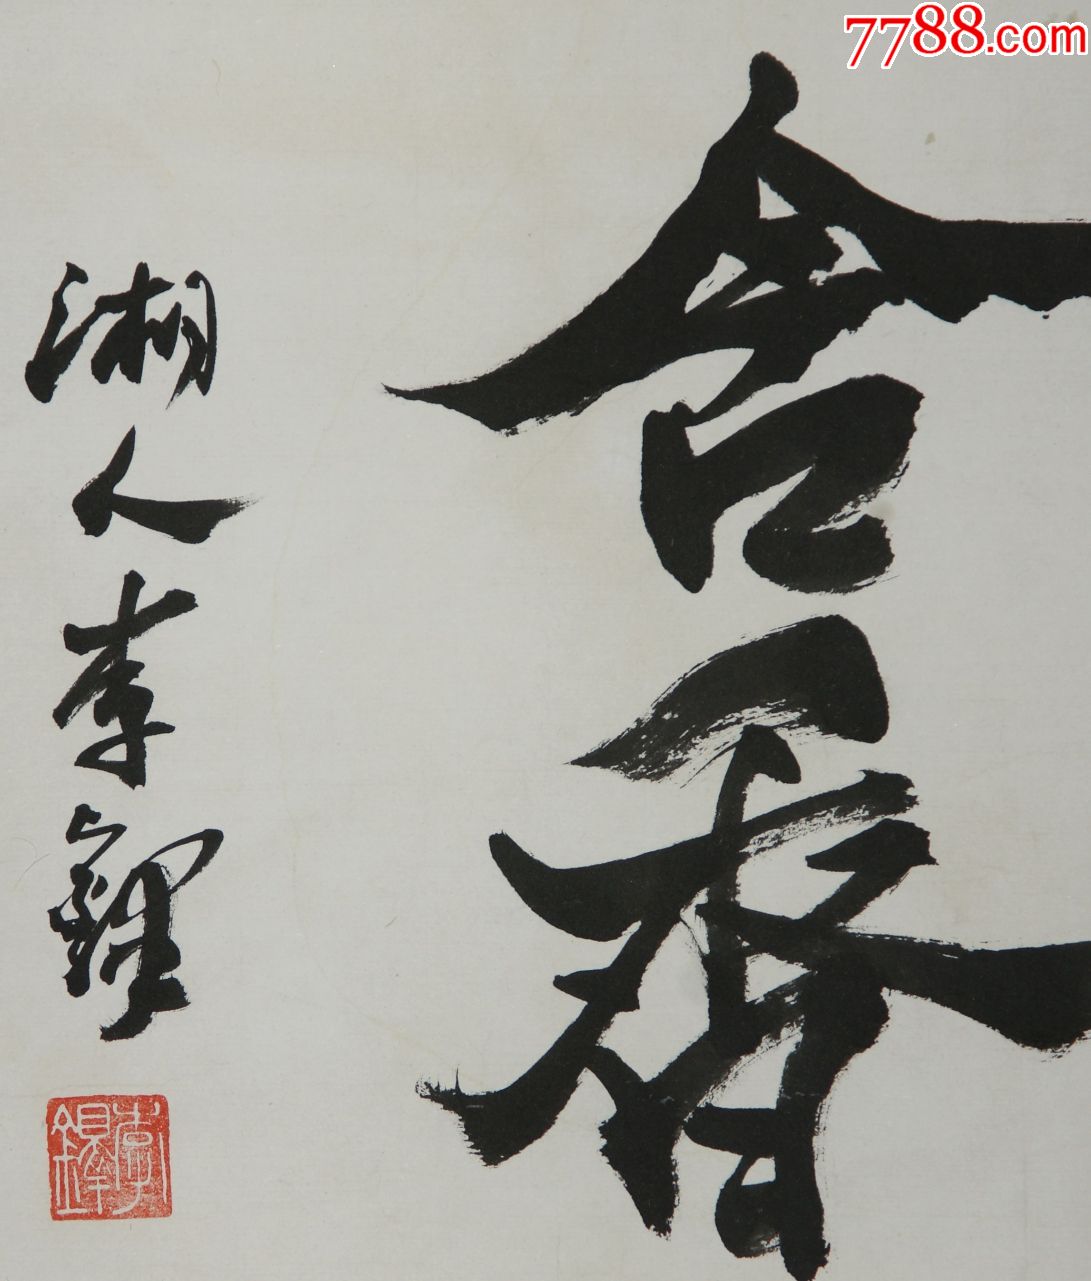 7788.com
含香
湘人李鐸
李鐸